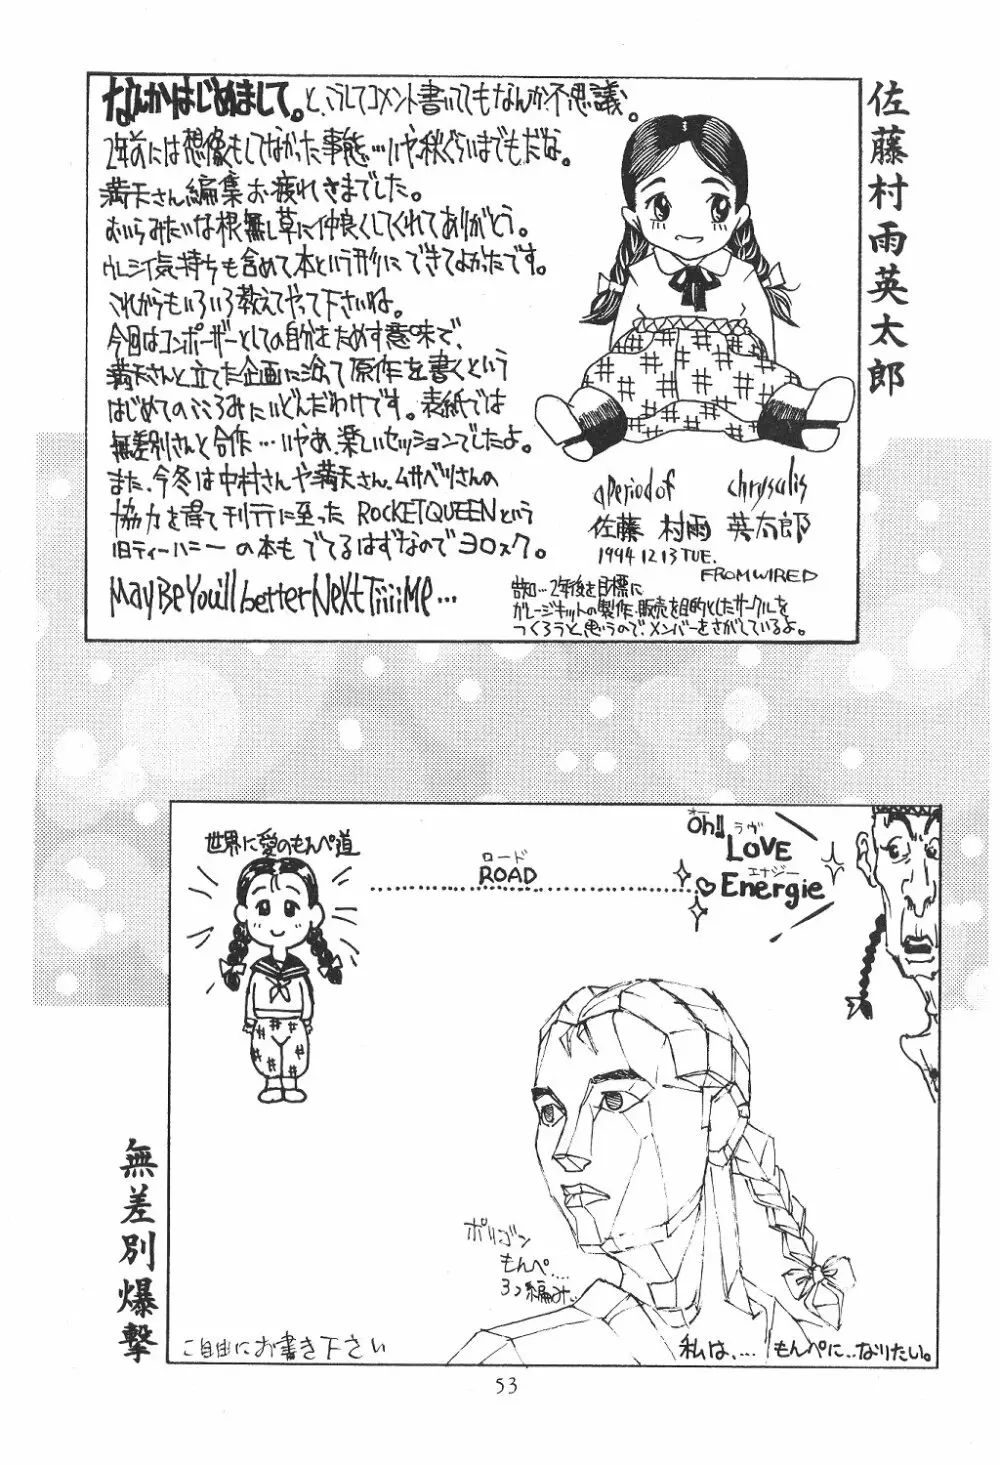 佐藤村雨英太郎
なんかはじめまして。と、こうしてコメント書いててもなんか不思議。
2年前には想像もしてなかった事態…いや、秋ぐらいまでもだな。
満天さん編集お疲れさまでした。
むいらみたいな根無し草に仲良くしてくれてありがとう。
ウレシイ気持ちも含めて本という形にできてよかったです。
これからもいろいろ教えてやって下さいね。
今回はコンポーザーとしての自分をためす意味で、
満天さんと立てた企画に沿って原作を書くという
はじめてのこころみにいどんだわけです。表紙では
無差別さんと合作…いやあ、楽しいセッションでしたよ。
また、今冬は中村さんや満天さん、ムサベツさんの
協力を得て刊行に至った ROCKETQUEENという
旧ティーハニーの本もでてるはずなのでヨロスク。
MayBeYou'll better NeXt TiiiiMe…
a Period of chrysalis
佐藤 村雨 英太郎
1994 12 13 TUE.
FROM WIRED
告知…2年後を目標に
ガレージキットの製作、販売を目的としたサークルを
つくろうと思うので、メンバーをさがしているよ。
世界に愛のもんぺ道
ロード
ROAD
オー
Oh!!
ラヴ
LOVE
エナジー
Energie
ポリゴン
もんぺ…
3つ編み…
ご自由にお書き下さい
私は、… もんぺに…なりたい。
無差別爆撃
53